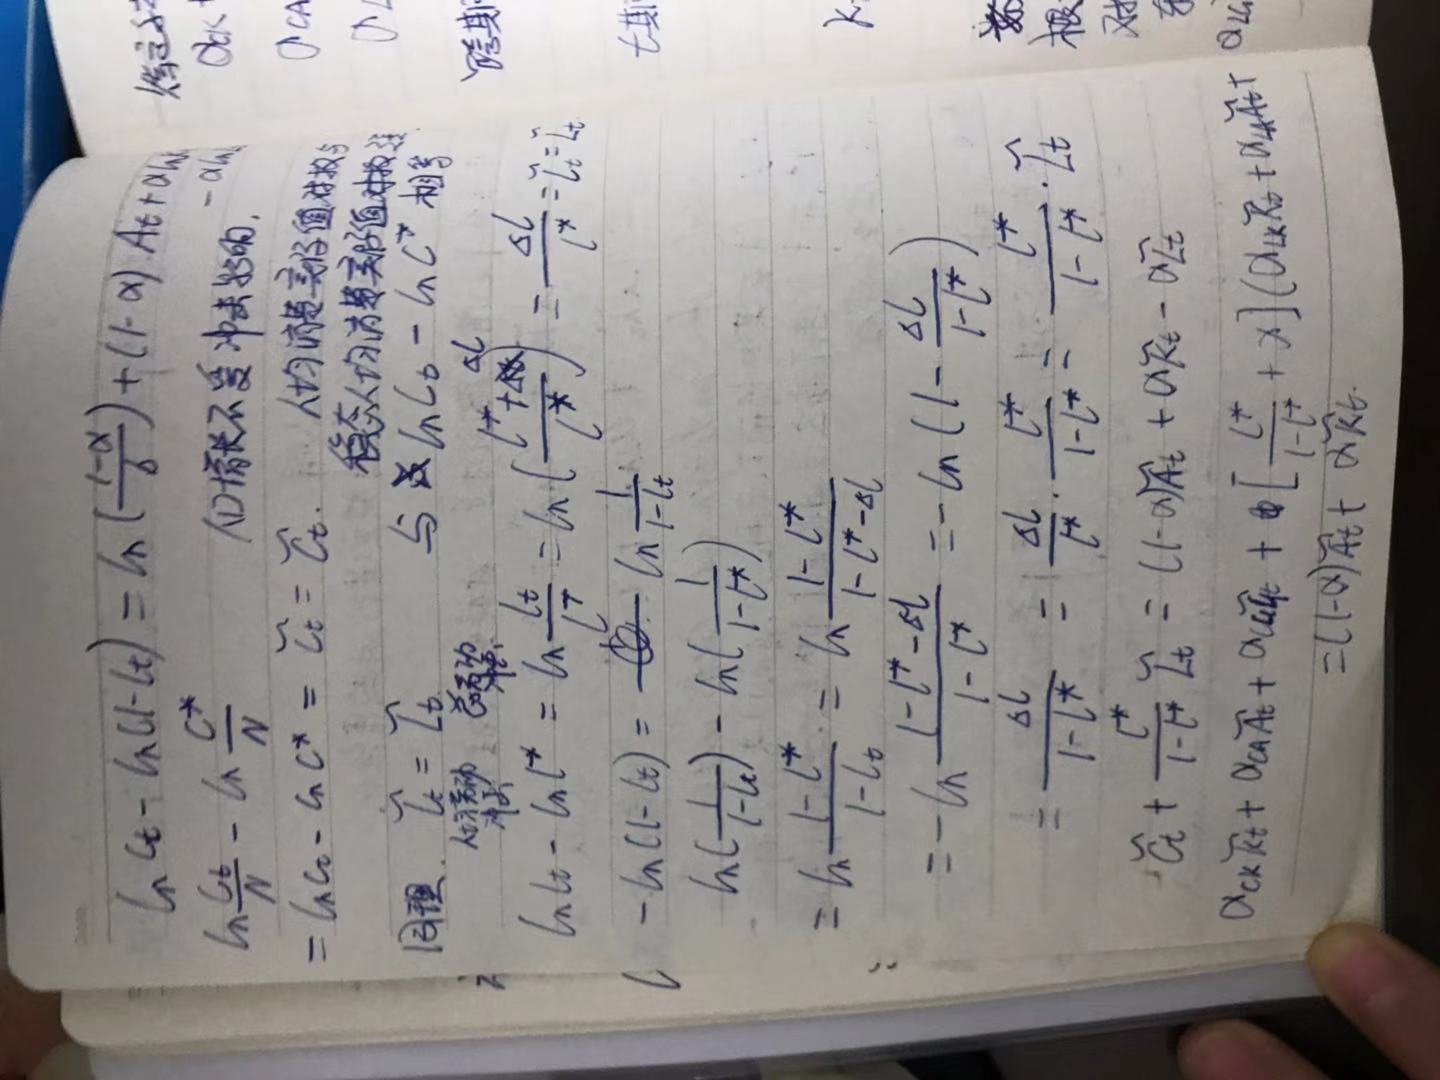 ln ct - ln(1-lt) = ln(\frac{1-α}{b}) + (1-α) At + α ln
- α ln
ln\frac{Ct}{N} - ln\frac{C*}{N} ∧D增长不受冲击影响.
= ln Ct - ln C* = \tilde{c}t = \tilde{C}t. 人均消费实际值对数与
稳态人均消费实际值对数
同理. \tilde{l}t = \tilde{L}t 与 ln Ct - ln C* 相等
人均劳动 总劳动
ln Lt - ln L* = ln\frac{Lt}{L*} = ln(\frac{L*+ΔL}{L*}) = \frac{ΔL}{L*} = \tilde{l}t = \tilde{L}t.
-ln(1-Lt) = ln\frac{1}{1-Lt}
ln(\frac{1}{1-Lt}) - ln(\frac{1}{1-L*})
= ln\frac{1-L*}{1-Lt} = ln\frac{1-L*}{1-L*-ΔL}
= -ln\frac{1-L*-ΔL}{1-L*} = -ln(1-\frac{ΔL}{1-L*})
= \frac{ΔL}{1-L*} = \frac{ΔL}{L*}·\frac{L*}{1-L*} = \frac{L*}{1-L*}·\tilde{L}t
\tilde{C}t + \frac{L*}{1-L*}\tilde{L}t = (1-α)\tilde{A}t + α\tilde{K}t - α\tilde{L}t
a_{CK}\tilde{K}t + a_{CA}\tilde{A}t + a_{CG}\tilde{G}t + [\frac{L*}{1-L*}+α](a_{LK}\tilde{K}t + a_{LA}\tilde{A}t +
= (1-α)\tilde{A}t + α\tilde{K}t.
跨期
t期
根
对